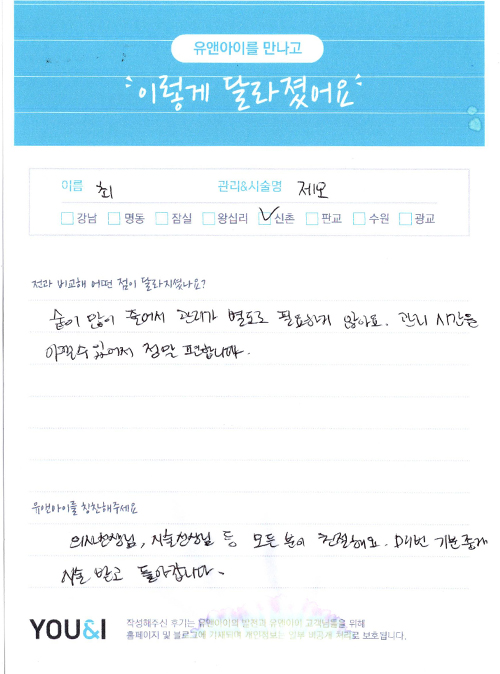 유앤아이를 만나고
이렇게 달라졌어요
이름 최 관리&시술명 제모
강남 명동 잠실 왕십리 신촌 판교 수원 광교
전과 비교해 어떤 점이 달라지셨나요?
숱이 많이 줄어서 관리가 별도로 필요하지 않아요. 관리 시간을
아낄수 있어서 정말 편합니다.
유앤아이를 칭찬해주세요
의사선생님, 시술선생님 등 모든 분이 친절해요. 매번 기분좋게
시술 받고 돌아갑니다.
YOU&I
작성해주신 후기는 유앤아이의 발전과 유앤아이 고객님들을 위해
홈페이지 및 블로그에 기재되며 개인정보는 일부 비공개 처리로 보호됩니다.